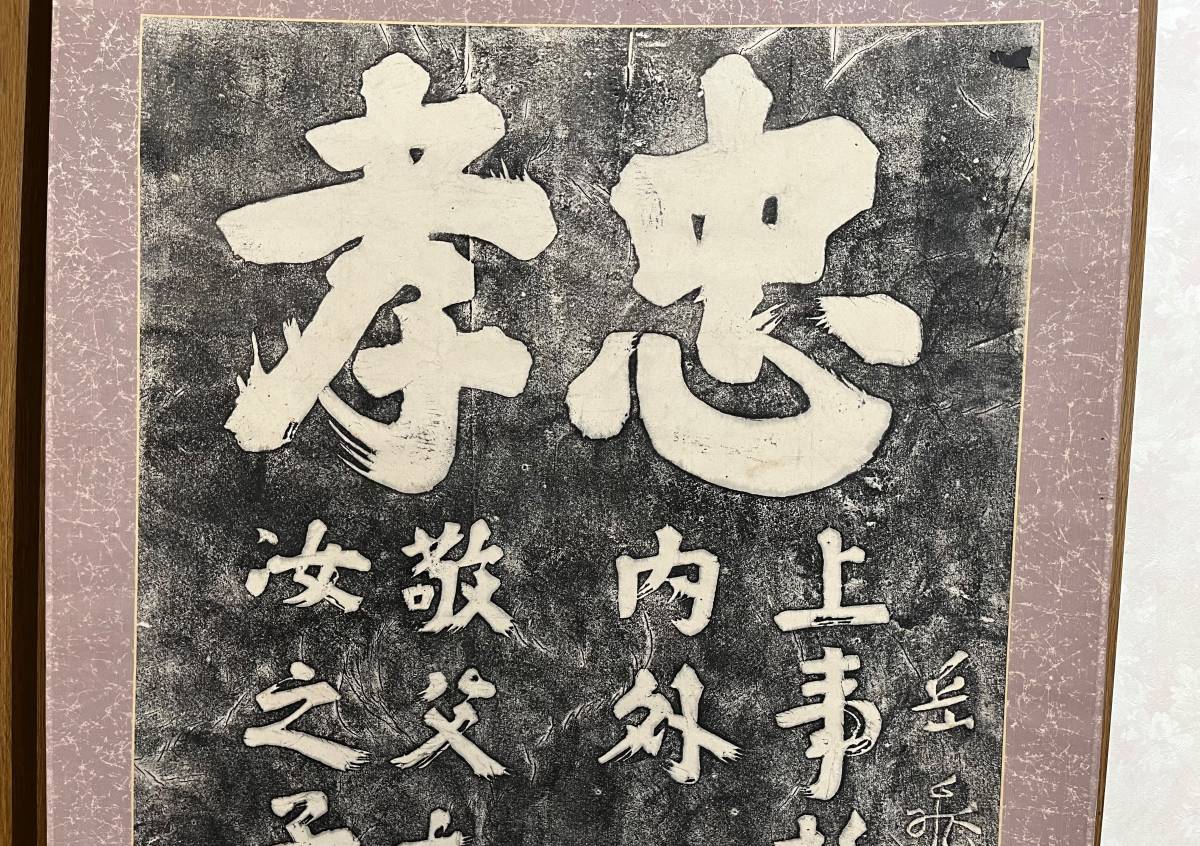 忠孝
岳飛
上事
内外
敬父
汝之